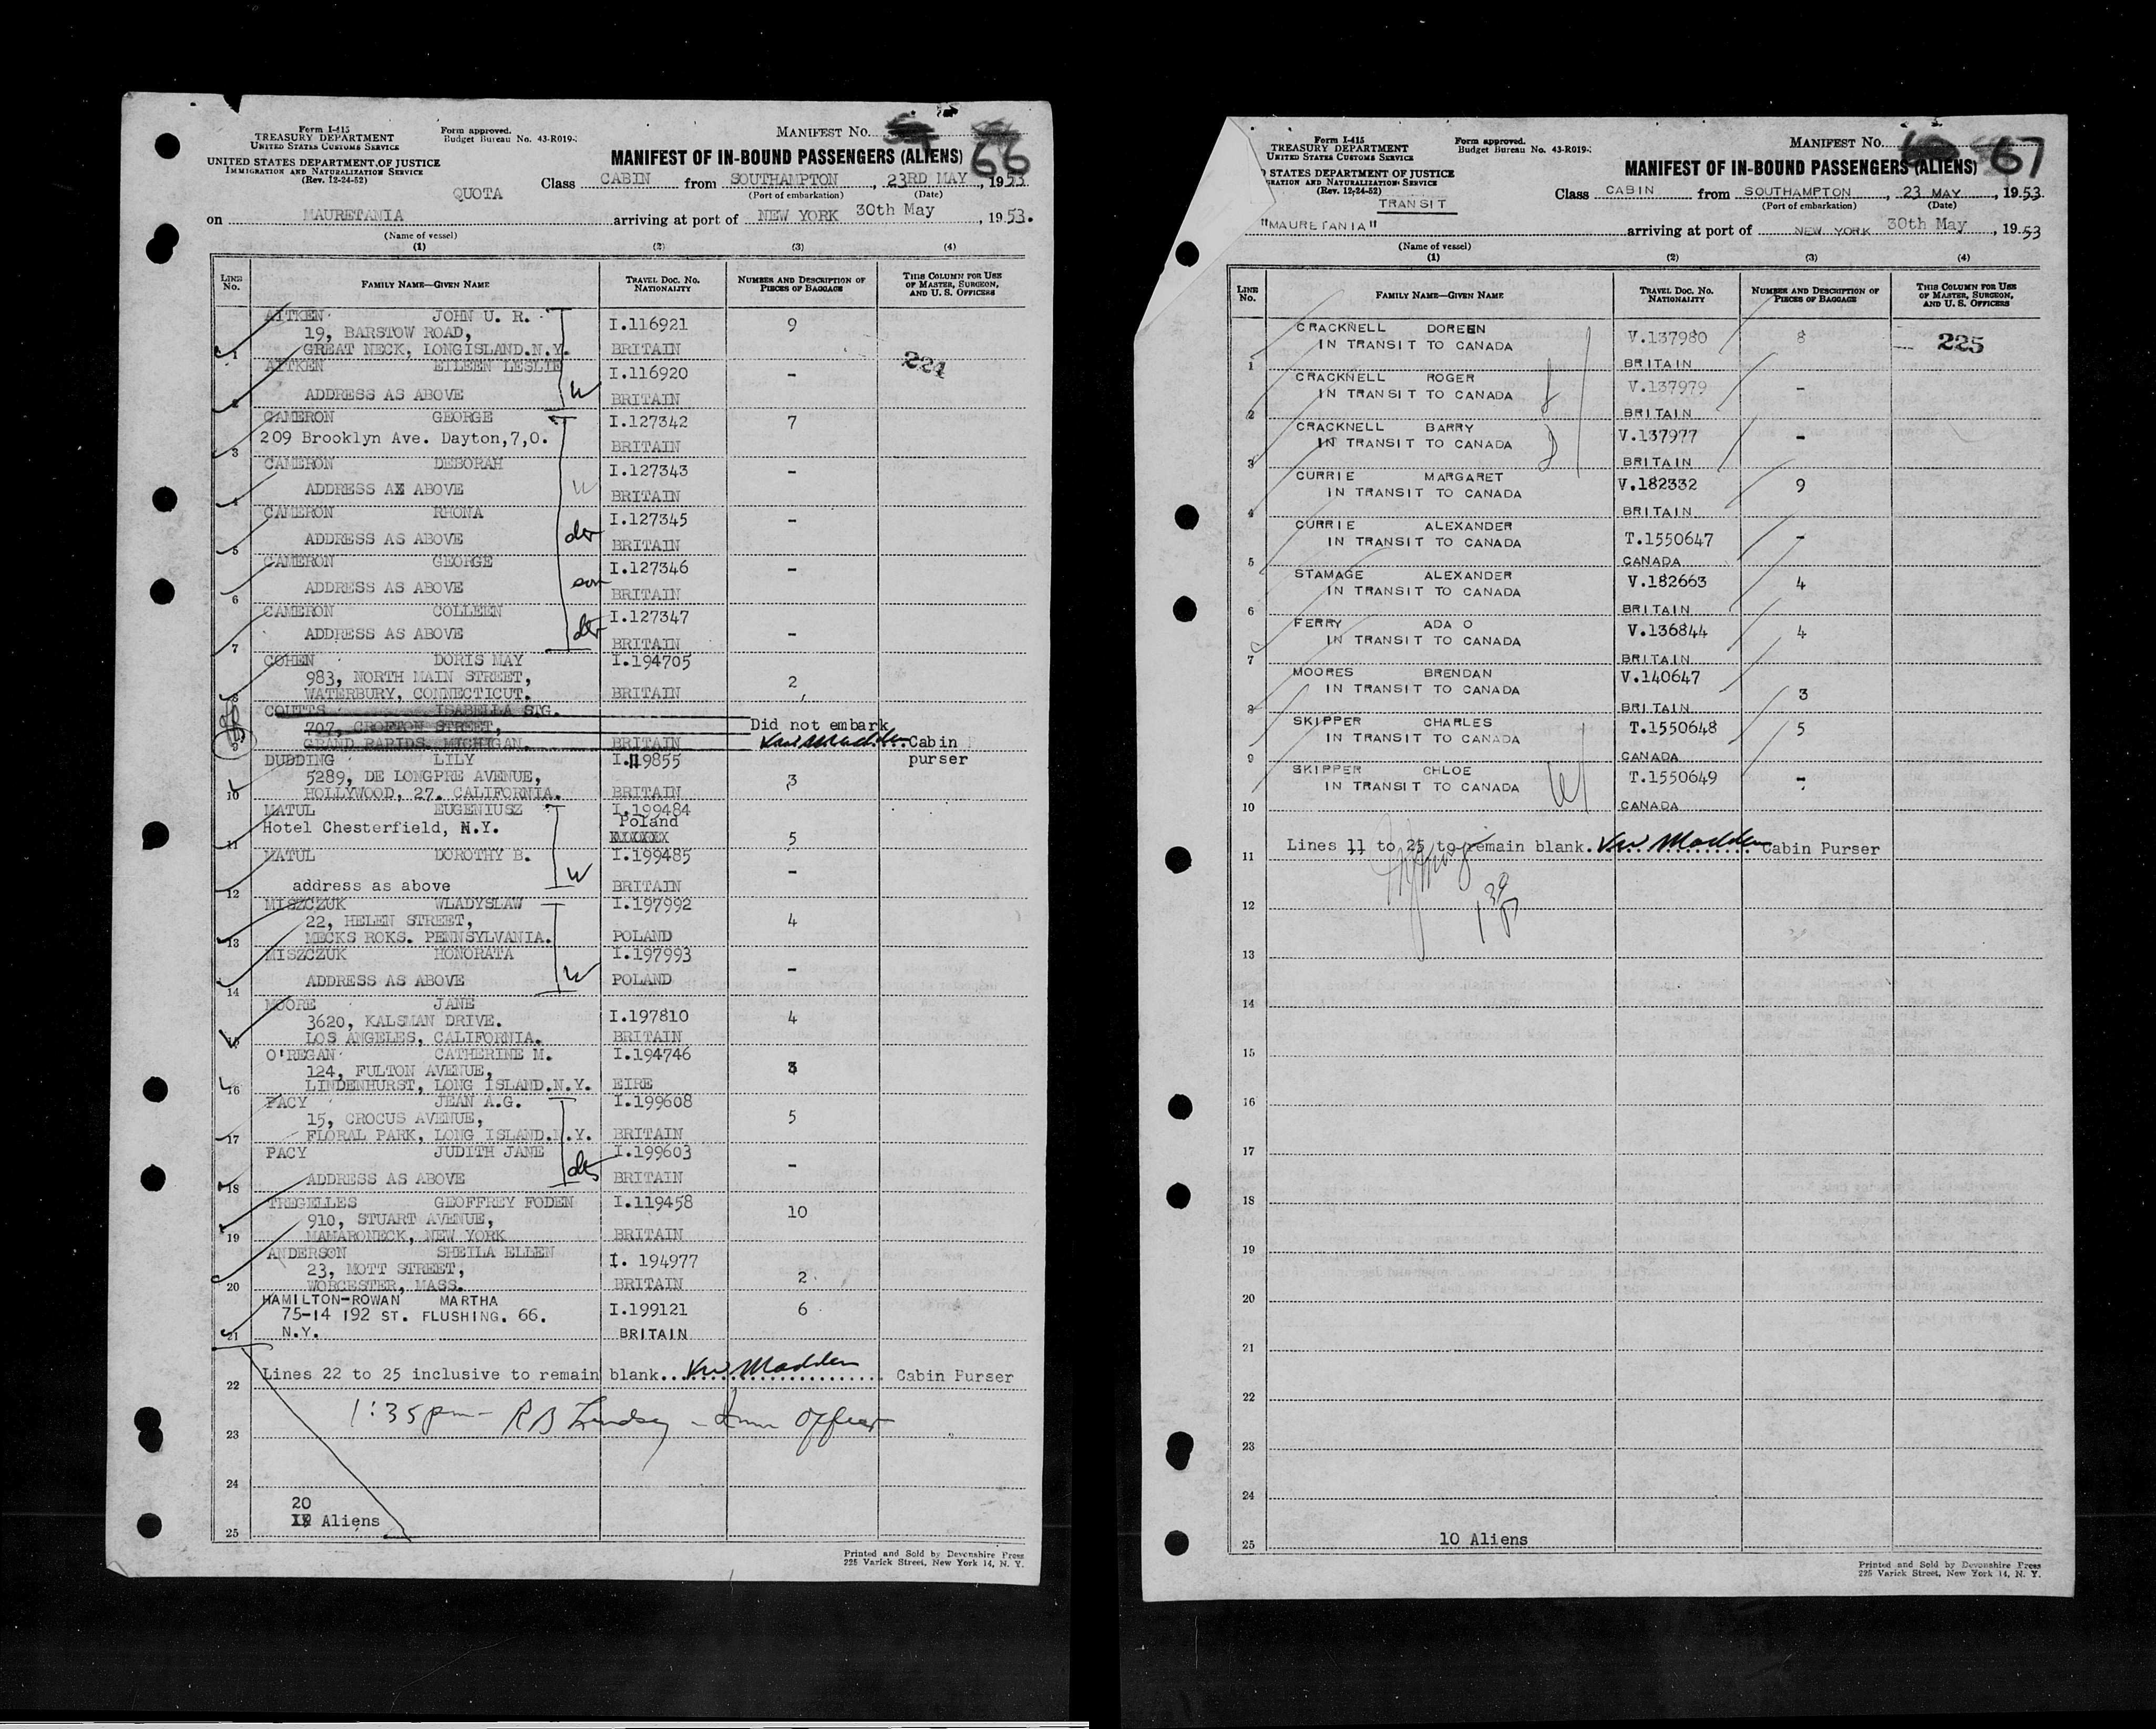 Form I-415
TREASURY DEPARTMENT
UNITED STATES CUSTOMS SERVICE
UNITED STATES DEPARTMENT OF JUSTICE
IMMIGRATION AND NATURALIZATION SERVICE
(Rev. 12-24-52)
Form approved.
Budget Bureau No. 43-R019-
MANIFEST No. 66
MANIFEST OF IN-BOUND PASSENGERS (ALIENS)
QUOTA
Class CABIN from SOUTHAMPTON, 23RD MAY, 1953
(Port of embarkation) (Date)
on MAURETANIA arriving at port of NEW YORK 30th May, 1953.
(Name of vessel)
(1) (2) (3) (4)
LINE No. FAMILY NAME—GIVEN NAME TRAVEL DOC. No. NATIONALITY NUMBER AND DESCRIPTION OF PIECES OF BAGGAGE THIS COLUMN FOR USE OF MASTER, SURGEON, AND U. S. OFFICERS
AITKEN JOHN U. R. I.116921 9
19, BARSTOW ROAD,
1 GREAT NECK, LONGISLAND.N.Y. BRITAIN
AITKEN EILEEN LESLIE I.116920 - 224
2 ADDRESS AS ABOVE W BRITAIN
CAMERON GEORGE I.127342 7
209 Brooklyn Ave. Dayton,7,O.
3 BRITAIN
CAMERON DEBORAH I.127343 -
4 ADDRESS AX ABOVE W BRITAIN
CAMERON RHONA I.127345 -
5 ADDRESS AS ABOVE dtr BRITAIN
CAMERON GEORGE I.127346 -
6 ADDRESS AS ABOVE son BRITAIN
CAMERON COLLEEN I.127347 -
7 ADDRESS AS ABOVE dtr BRITAIN
COHEN DORIS MAY I.194705
983, NORTH MAIN STREET, 2
8 WATERBURY, CONNECTICUT. BRITAIN
COUTTS ISABELLA STG.
707, CROFTON STREET, Did not embark
9 GRAND RAPIDS. MICHIGAN. BRITAIN KW Madden Cabin
purser
DUDDING LILY I.119855
5289, DE LONGPRE AVENUE, 3
10 HOLLYWOOD, 27. CALIFORNIA. BRITAIN
MATUL EUGENIUSZ I.199484
Hotel Chesterfield, N.Y. Poland
11 XXXXXXX 5
MATUL DOROTHY B. I.199485 -
12 address as above W BRITAIN
MISZCZUK WLADYSLAW I.197992
22, HELEN STREET, 4
13 MECKS ROKS. PENNSYLVANIA. POLAND
MISZCZUK HONORATA I.197993 -
14 ADDRESS AS ABOVE W POLAND
MOORE JANE
3620, KALSMAN DRIVE. I.197810 4
15 LOS ANGELES, CALIFORNIA. BRITAIN
O'REGAN CATHERINE M. I.194746
124, FULTON AVENUE, 3
16 LINDENHURST, LONG ISLAND.N.Y. EIRE
PACY JEAN A.G. I.199608
15, CROCUS AVENUE, 5
17 FLORAL PARK, LONG ISLAND.N.Y. BRITAIN
PACY JUDITH JANE I.199603 -
18 ADDRESS AS ABOVE BRITAIN
TREGELLES GEOFFREY FODEN I.119458
910, STUART AVENUE, 10
19 MAMARONECK, NEW YORK BRITAIN
ANDERSON SHEILA ELLEN I. 194977
23, MOTT STREET,
20 WORCESTER, MASS. BRITAIN 2
HAMILTON-ROWAN MARTHA
75-14 192 ST. FLUSHING. 66. I.199121 6
21 N.Y. BRITAIN
22 Lines 22 to 25 inclusive to remain blank... KW Madden Cabin Purser
1:35pm - R B Lindsey - Imm Officer
23
24
20
25 Aliens
Printed and Sold by Devonshire Press
225 Varick Street, New York 14, N. Y.
Form I-415
TREASURY DEPARTMENT
UNITED STATES CUSTOMS SERVICE
STATES DEPARTMENT OF JUSTICE
GRATION AND NATURALIZATION SERVICE
(Rev. 12-24-52)
Form approved.
Budget Bureau No. 43-R019-
MANIFEST No. 67
MANIFEST OF IN-BOUND PASSENGERS (ALIENS)
TRANSIT
Class CABIN from SOUTHAMPTON, 23 MAY, 1953
(Port of embarkation) (Date)
"MAURETANIA" arriving at port of NEW YORK 30th May, 1953
(Name of vessel)
(1) (2) (3) (4)
LINE No. FAMILY NAME—GIVEN NAME TRAVEL DOC. No. NATIONALITY NUMBER AND DESCRIPTION OF PIECES OF BAGGAGE THIS COLUMN FOR USE OF MASTER, SURGEON, AND U. S. OFFICERS
CRACKNELL DOREEN V.137980 8 225
IN TRANSIT TO CANADA
1 BRITAIN
CRACKNELL ROGER V.137979 -
IN TRANSIT TO CANADA
2 BRITAIN
CRACKNELL BARRY V.137977 -
IN TRANSIT TO CANADA
3 BRITAIN
CURRIE MARGARET V.182332 9
IN TRANSIT TO CANADA
4 BRITAIN
CURRIE ALEXANDER T.1550647 -
IN TRANSIT TO CANADA
5 CANADA
STAMAGE ALEXANDER V.182663 4
IN TRANSIT TO CANADA
6 BRITAIN
FERRY ADA O V.136844 4
IN TRANSIT TO CANADA
7 BRITAIN
MOORES BRENDAN V.140647
IN TRANSIT TO CANADA 3
8 BRITAIN
SKIPPER CHARLES T.1550648 5
IN TRANSIT TO CANADA
9 CANADA
SKIPPER CHLOE T.1550649 -
IN TRANSIT TO CANADA W
10 CANADA
11 Lines 11 to 25 to remain blank. KW Madden Cabin Purser
12
13
14
15
16
17
18
19
20
21
22
23
24
25 10 Aliens
Printed and Sold by Devonshire Press
225 Varick Street, New York 14, N. Y.